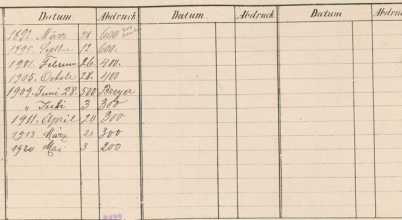 Datum Abdruck Datum Abdruck Datum Abdruck
März 600
Sept. 12 600.
1901. Februar 26 400.
1905. Octob. 28. 400
1909. Juni 28. 500 Breyer
" Juli 3 300
1911. April 20 300
1913 März 300
1920 Mai 3 200